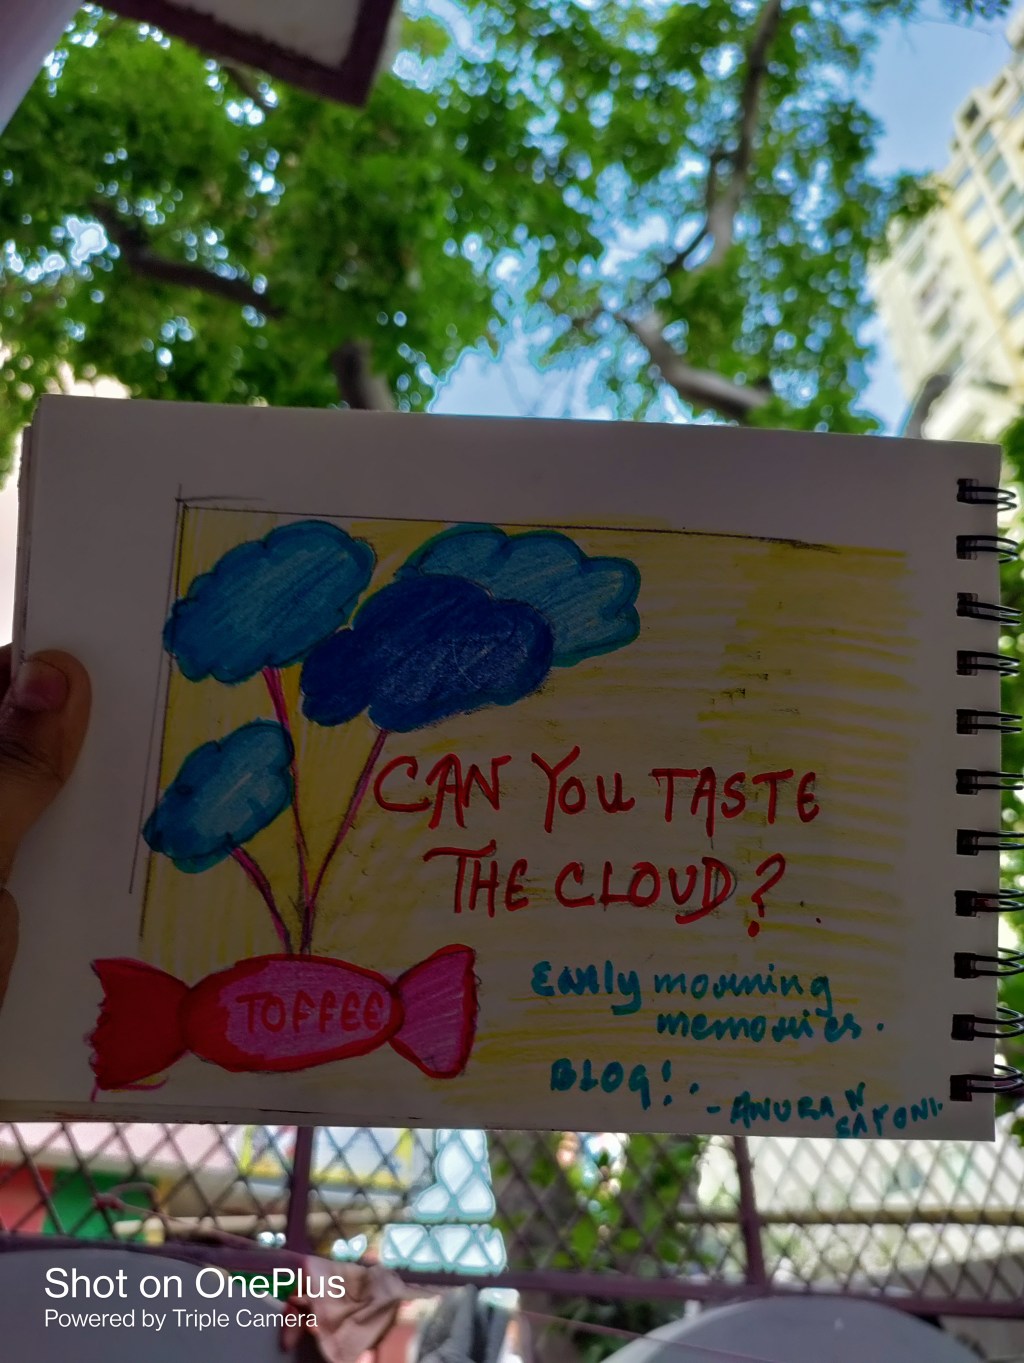 CAN YOU TASTE
THE CLOUD?
TOFFEE
Early morning
memories.
BLOG!.
- ANURA N
SATONI.
Shot on OnePlus
Powered by Triple Camera